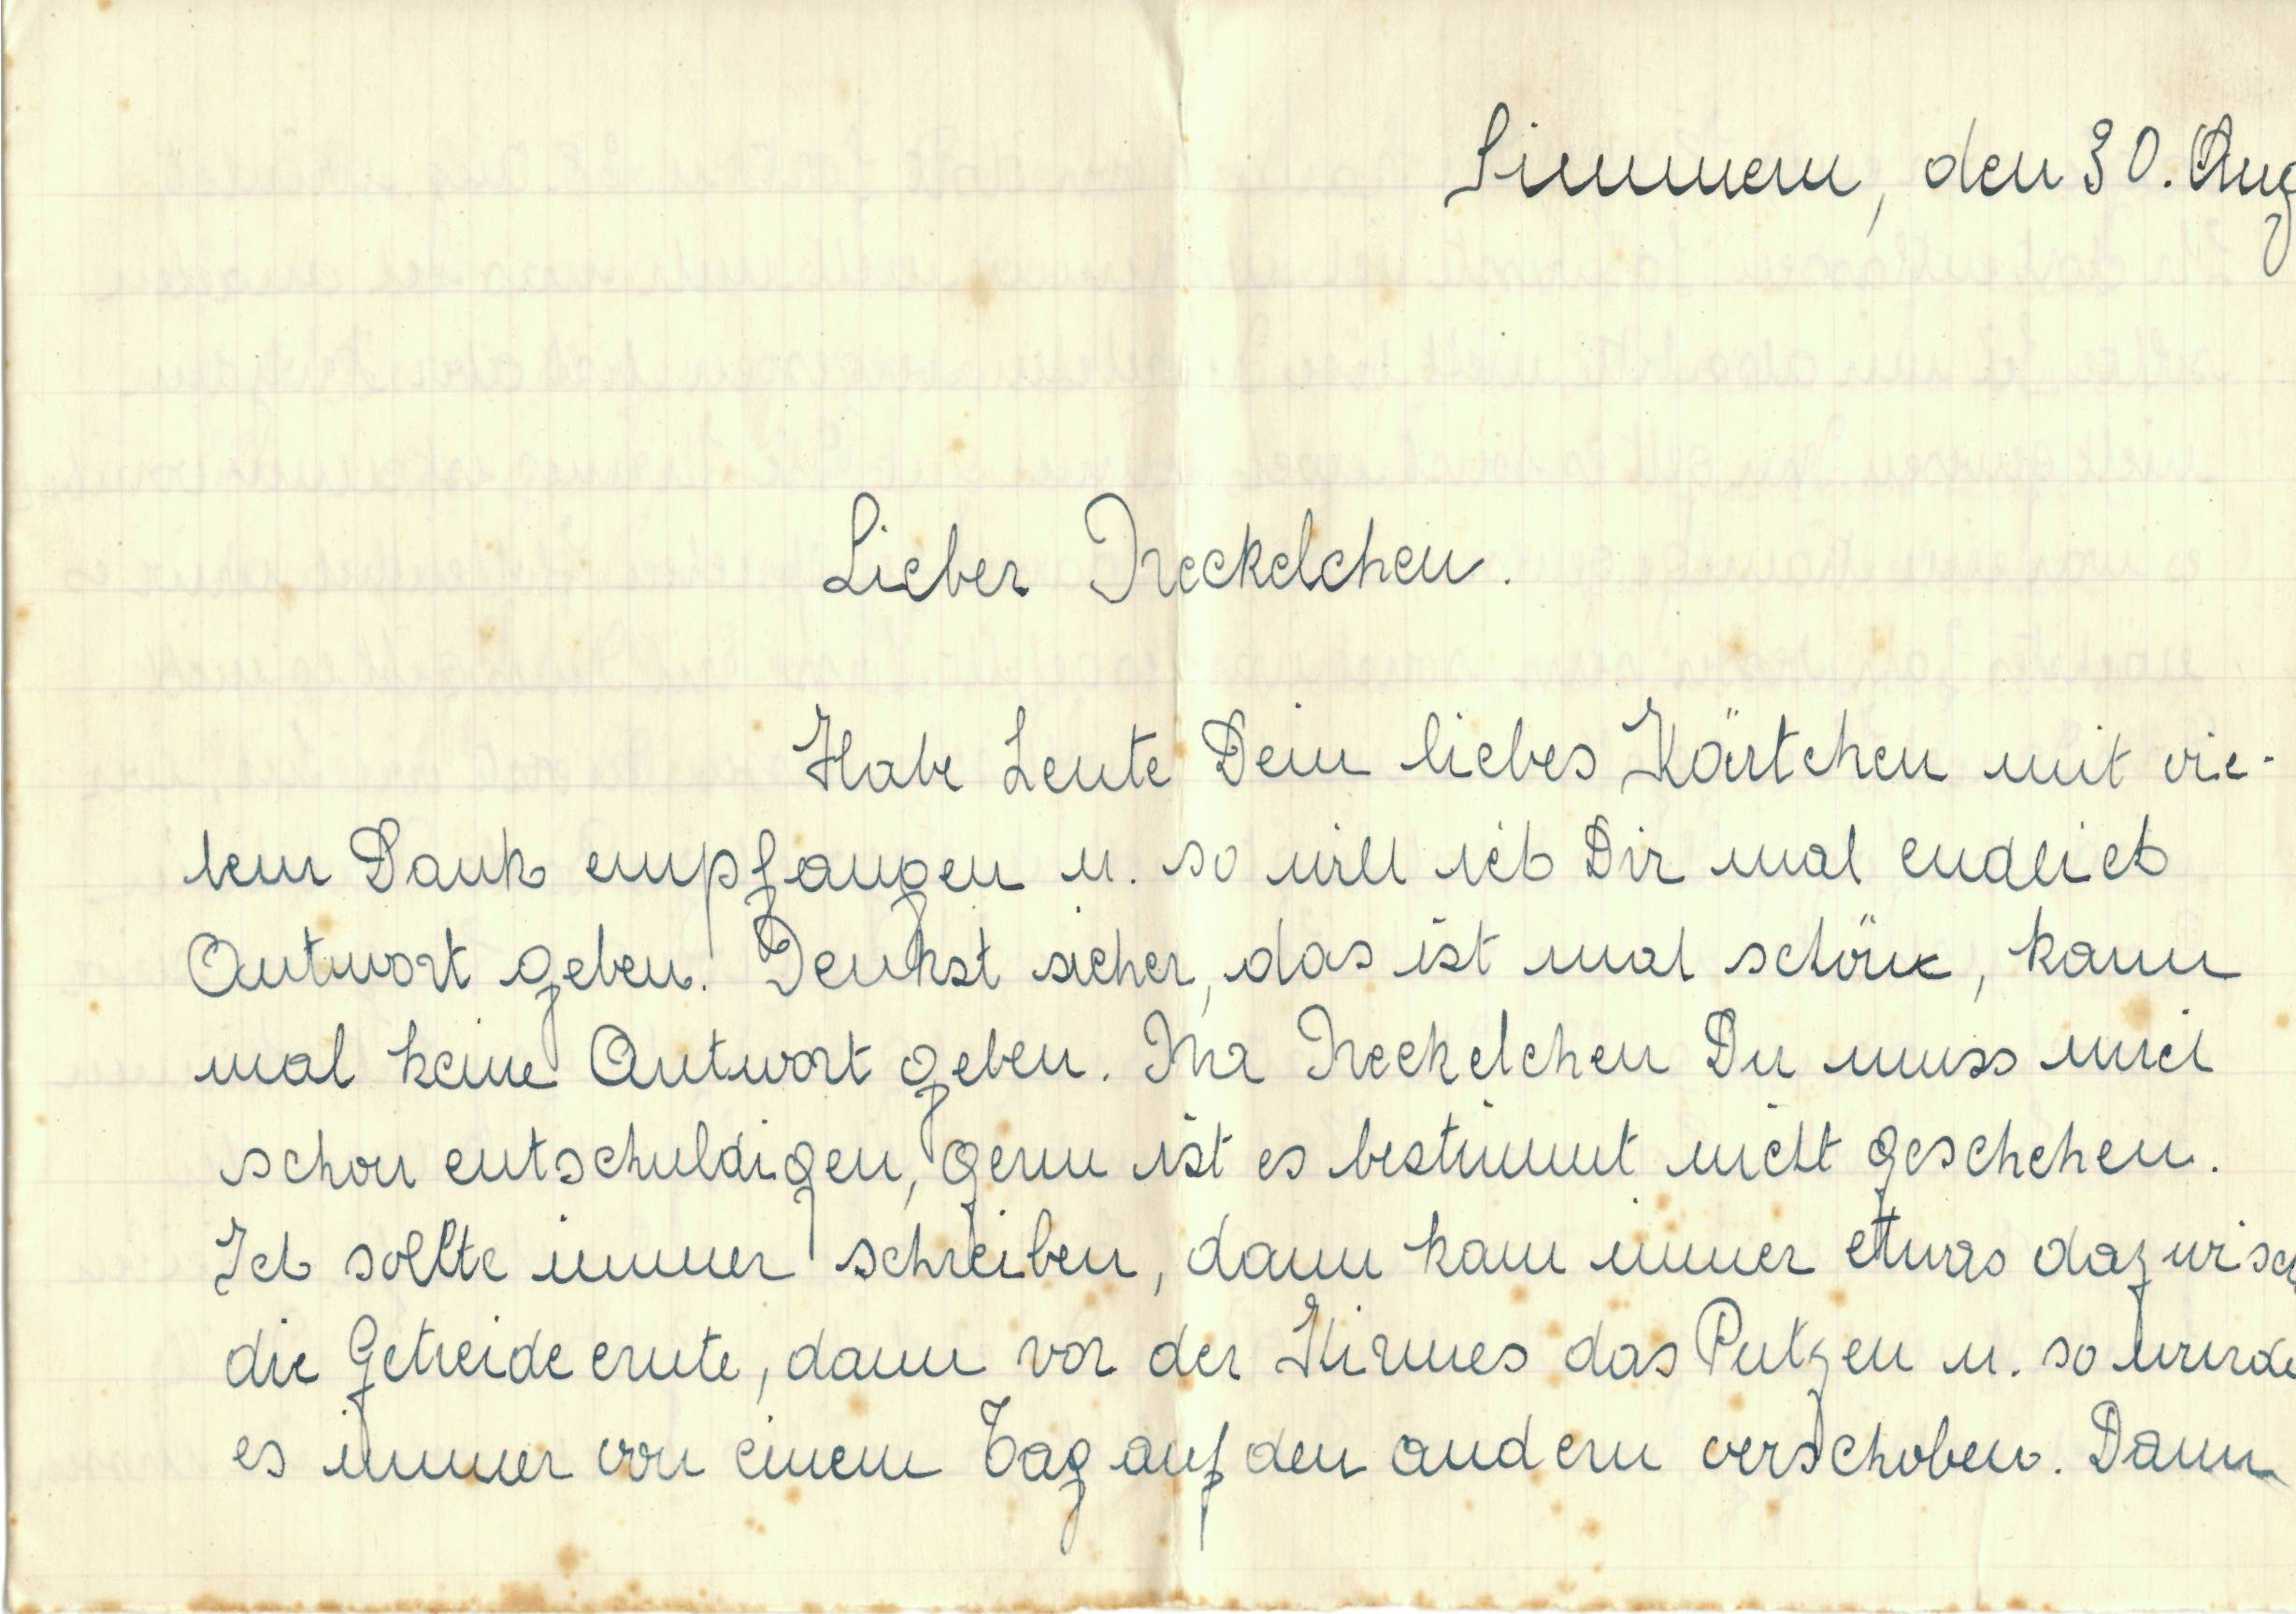 Simmern, den 30. Aug
Lieber Neckelchen.
Habe heute Dein liebes Kärtchen mit vie-
lem Dank empfangen u. so will ich Dir mal endlich
Antwort geben. Denkst sicher, das ist mal schön, kann
mal keine Antwort geben. Na Neckelchen Du muss mich
schon entschuldigen, gern ist es bestimmt nicht geschehen.
Ich sollte immer schreiben, dann kam immer etwas dazwisch
die Getreideernte, dann vor der Kirmes das Putzen u. so wurde
es immer von einem Tag auf den andern verschoben. Dann